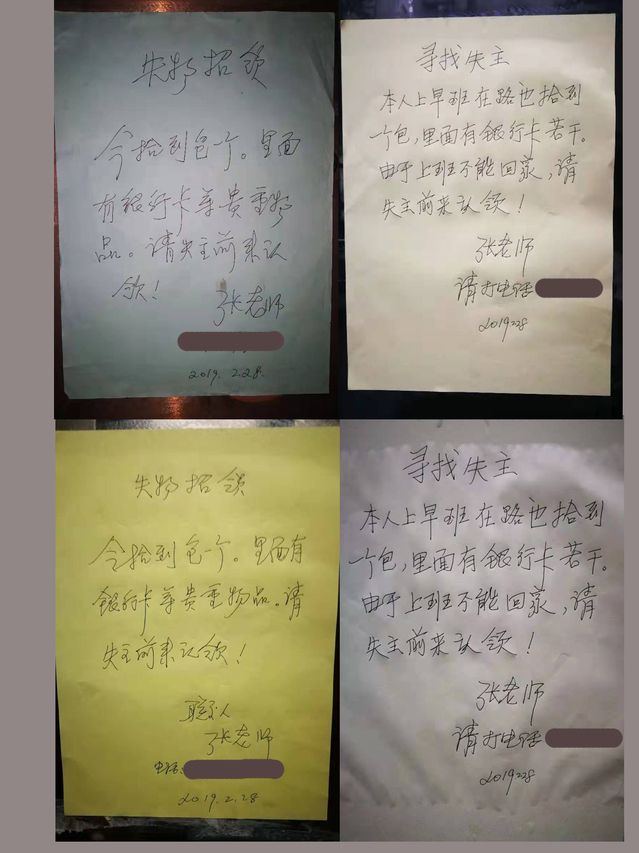 失物招领
今拾到包一个。里面
有银行卡等贵重物
品。请失主前来认
领！
张老师
2019.2.28.
寻找失主
本人上早班在路边拾到
一个包，里面有银行卡若干。
由于上班不能回家，请
失主前来认领！
张老师
请打电话
2019228
失物招领
今拾到包一个。里面有
银行卡等贵重物品。请
失主前来认领！
联系人
张老师
电话：
2019.2.28
寻找失主
本人上早班在路边拾到
一个包，里面有银行卡若干。
由于上班不能回家，请
失主前来认领！
张老师
请打电话
2019228